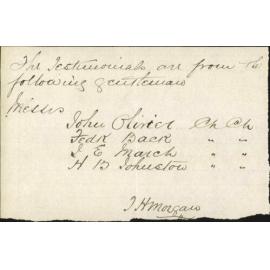 The Testimonials are from the
following gentleman
Messrs
John Oliver Ch Ch
Fedk Back " "
J E March " "
H B Johnstow " "
J H Morgan